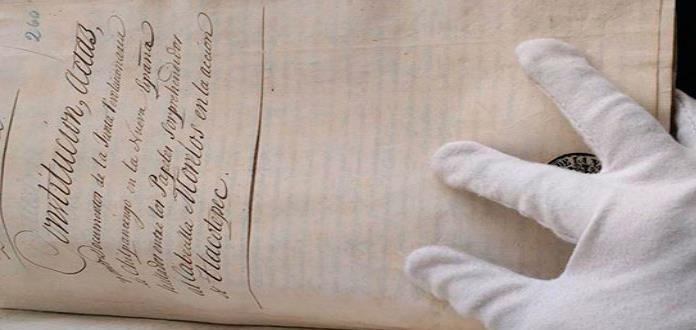 260
Constitucion, Actas,
y Documentos de la Junta revolucionaria
de Chilpancingo en la Nueva España
hallados entre los Papeles sorprehendidos
al Cabecilla Morelos en la acción
de Tlacotepec.